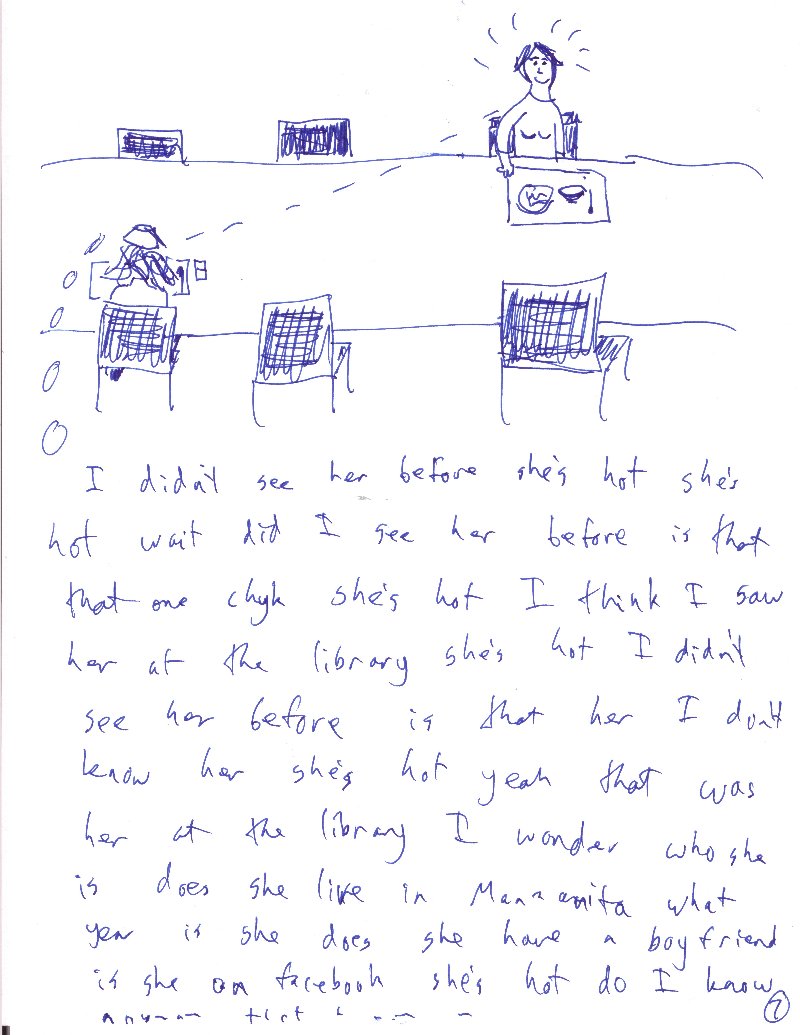 I didn't see her before she's hot she's
hot wait did I see her before is that
that one chyk she's hot I think I saw
her at the library she's hot I didn't
see her before is that her I don't
know her she's hot yeah that was
her at the library I wonder who she
is does she live in Manzanita what
year is she does she have a boyfriend
is she on facebook she's hot do I know
7